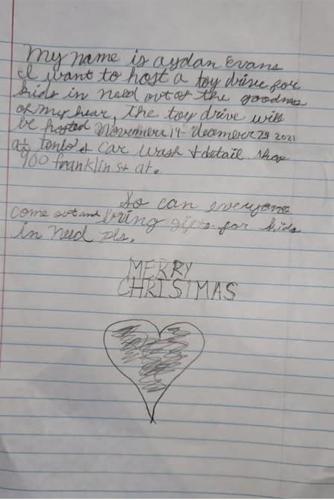 My name is aydan Evans
I want to host a toy drive for
kids in need out of the goodnes
of my hear, the toy drive will
be hosted November 19 - december 23 2021
at Tonto's car wash & detail shop
900 franklin st at.
So can everyone
come out and bring gifts for kids
in need pls.
MERRY
CHRISTMAS